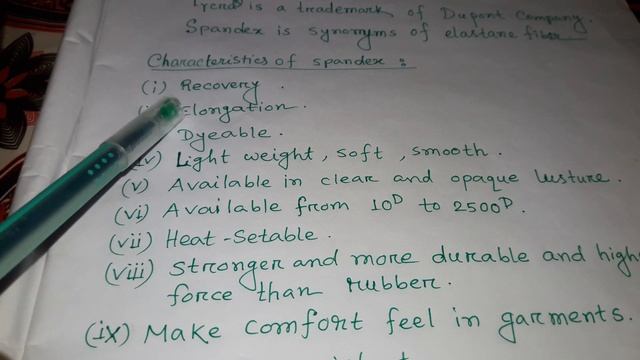 is a trademark of Dupont Company.
Spandex is synonyms of elastane fiber.
Characteristics of spandex :
(i) Recovery .
Elongation .
Dyeable .
(iv) Light weight, soft , smooth .
(v) Available in clear and opaque lusture.
(vi) Available from 10D to 2500D.
(vii) Heat-Setable .
(viii) Stronger and more durable and high
force than rubber.
(ix) Make comfort feel in garments.